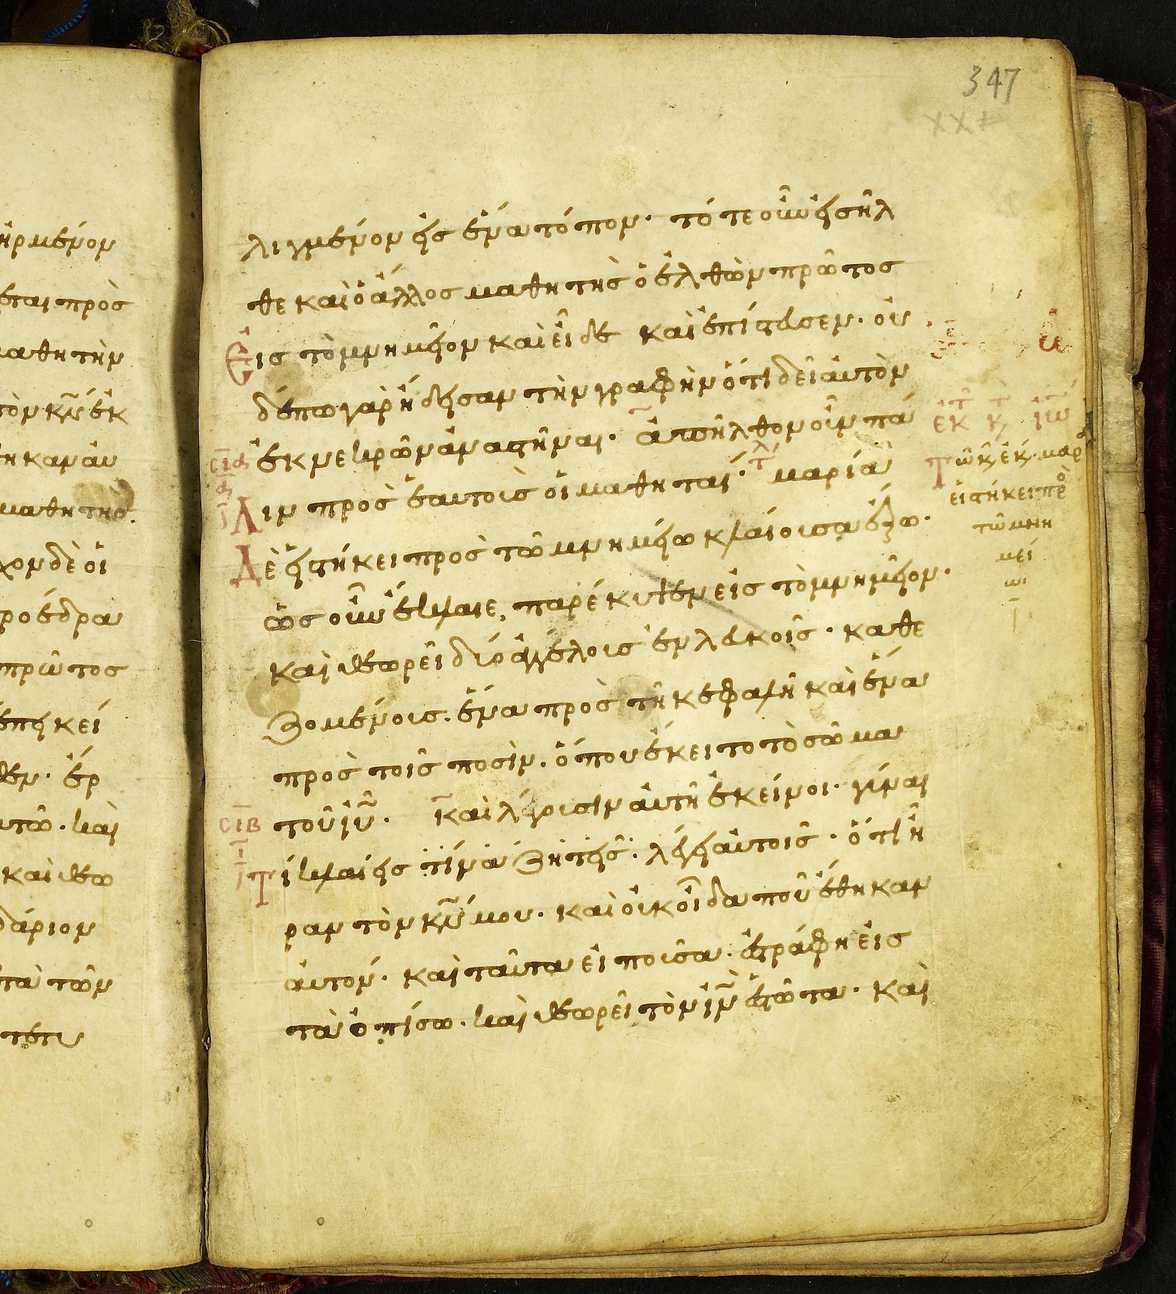 ἠρμένον
εται πρὸς
μαθητὴν
τὸν κ̅ν̅ ἐκ
θηκαν αυ
μαθητής.
χον δὲ οἱ
προέδρα
πρῶτος
ἐπεκεί
θεν. ἔρ
αυτῶ. καὶ
καὶ θεω
δάριον
ετὰ τῶν
347
λιγμένον εἰς ἕνα τόπον. τότε οὖν εἰσῆλ
θε καὶ ὁ ἄλλος μαθητὴς ὁ ἐλθὼν πρῶτος
εἰς τὸ μνημεῖον καὶ εἶδε καὶ ἐπίστευσεν. οὐ
δέπω γὰρ ἤδεισαν τὴν γραφὴν ὅτι δεῖ αὐτὸν
ἐκ νεκρῶν ἀναστῆναι. ἀπῆλθον οὖν πά
λιν πρὸς ἑαυτοὺς οἱ μαθηταί. μαρία
δὲ εἱστήκει πρὸς τῶ μνημείω κλαίουσα ἔξω.
ὡς οὖν ἔκλαιε, παρέκυψεν εἰς τὸ μνημεῖον.
καὶ θεωρεῖ δύο ἀγγέλους ἐν λευκοῖς. καθε
ζομένους. ἕνα πρὸς τῆ κεφαλῆ καὶ ἕνα
πρὸς τοῖς ποσίν. ὅπου ἔκειτο τὸ σῶμα
τοῦ ἰ̅υ̅. καὶ λέγουσιν αὐτῆ ἐκεῖνοι. γύναι
τί κλαίεις τίνα ζητεῖς. λέγει αὐτοῖς. ὅτι ἦ
ραν τὸν κ̅ν̅ μου. καὶ οὐκ οἶδα ποῦ ἔθηκαν
αὐτόν. καὶ ταῦτα εἰποῦσα. ἐστράφη εἰς
τὰ ὀπίσω. καὶ θεωρεῖ τὸν ἰ̅ν̅ ἑστῶτα. καὶ
σια
σιβ
Τῶ κ, ἐκ, μαρ
εἱστήκει π
τῶ μνη
μεί
ω